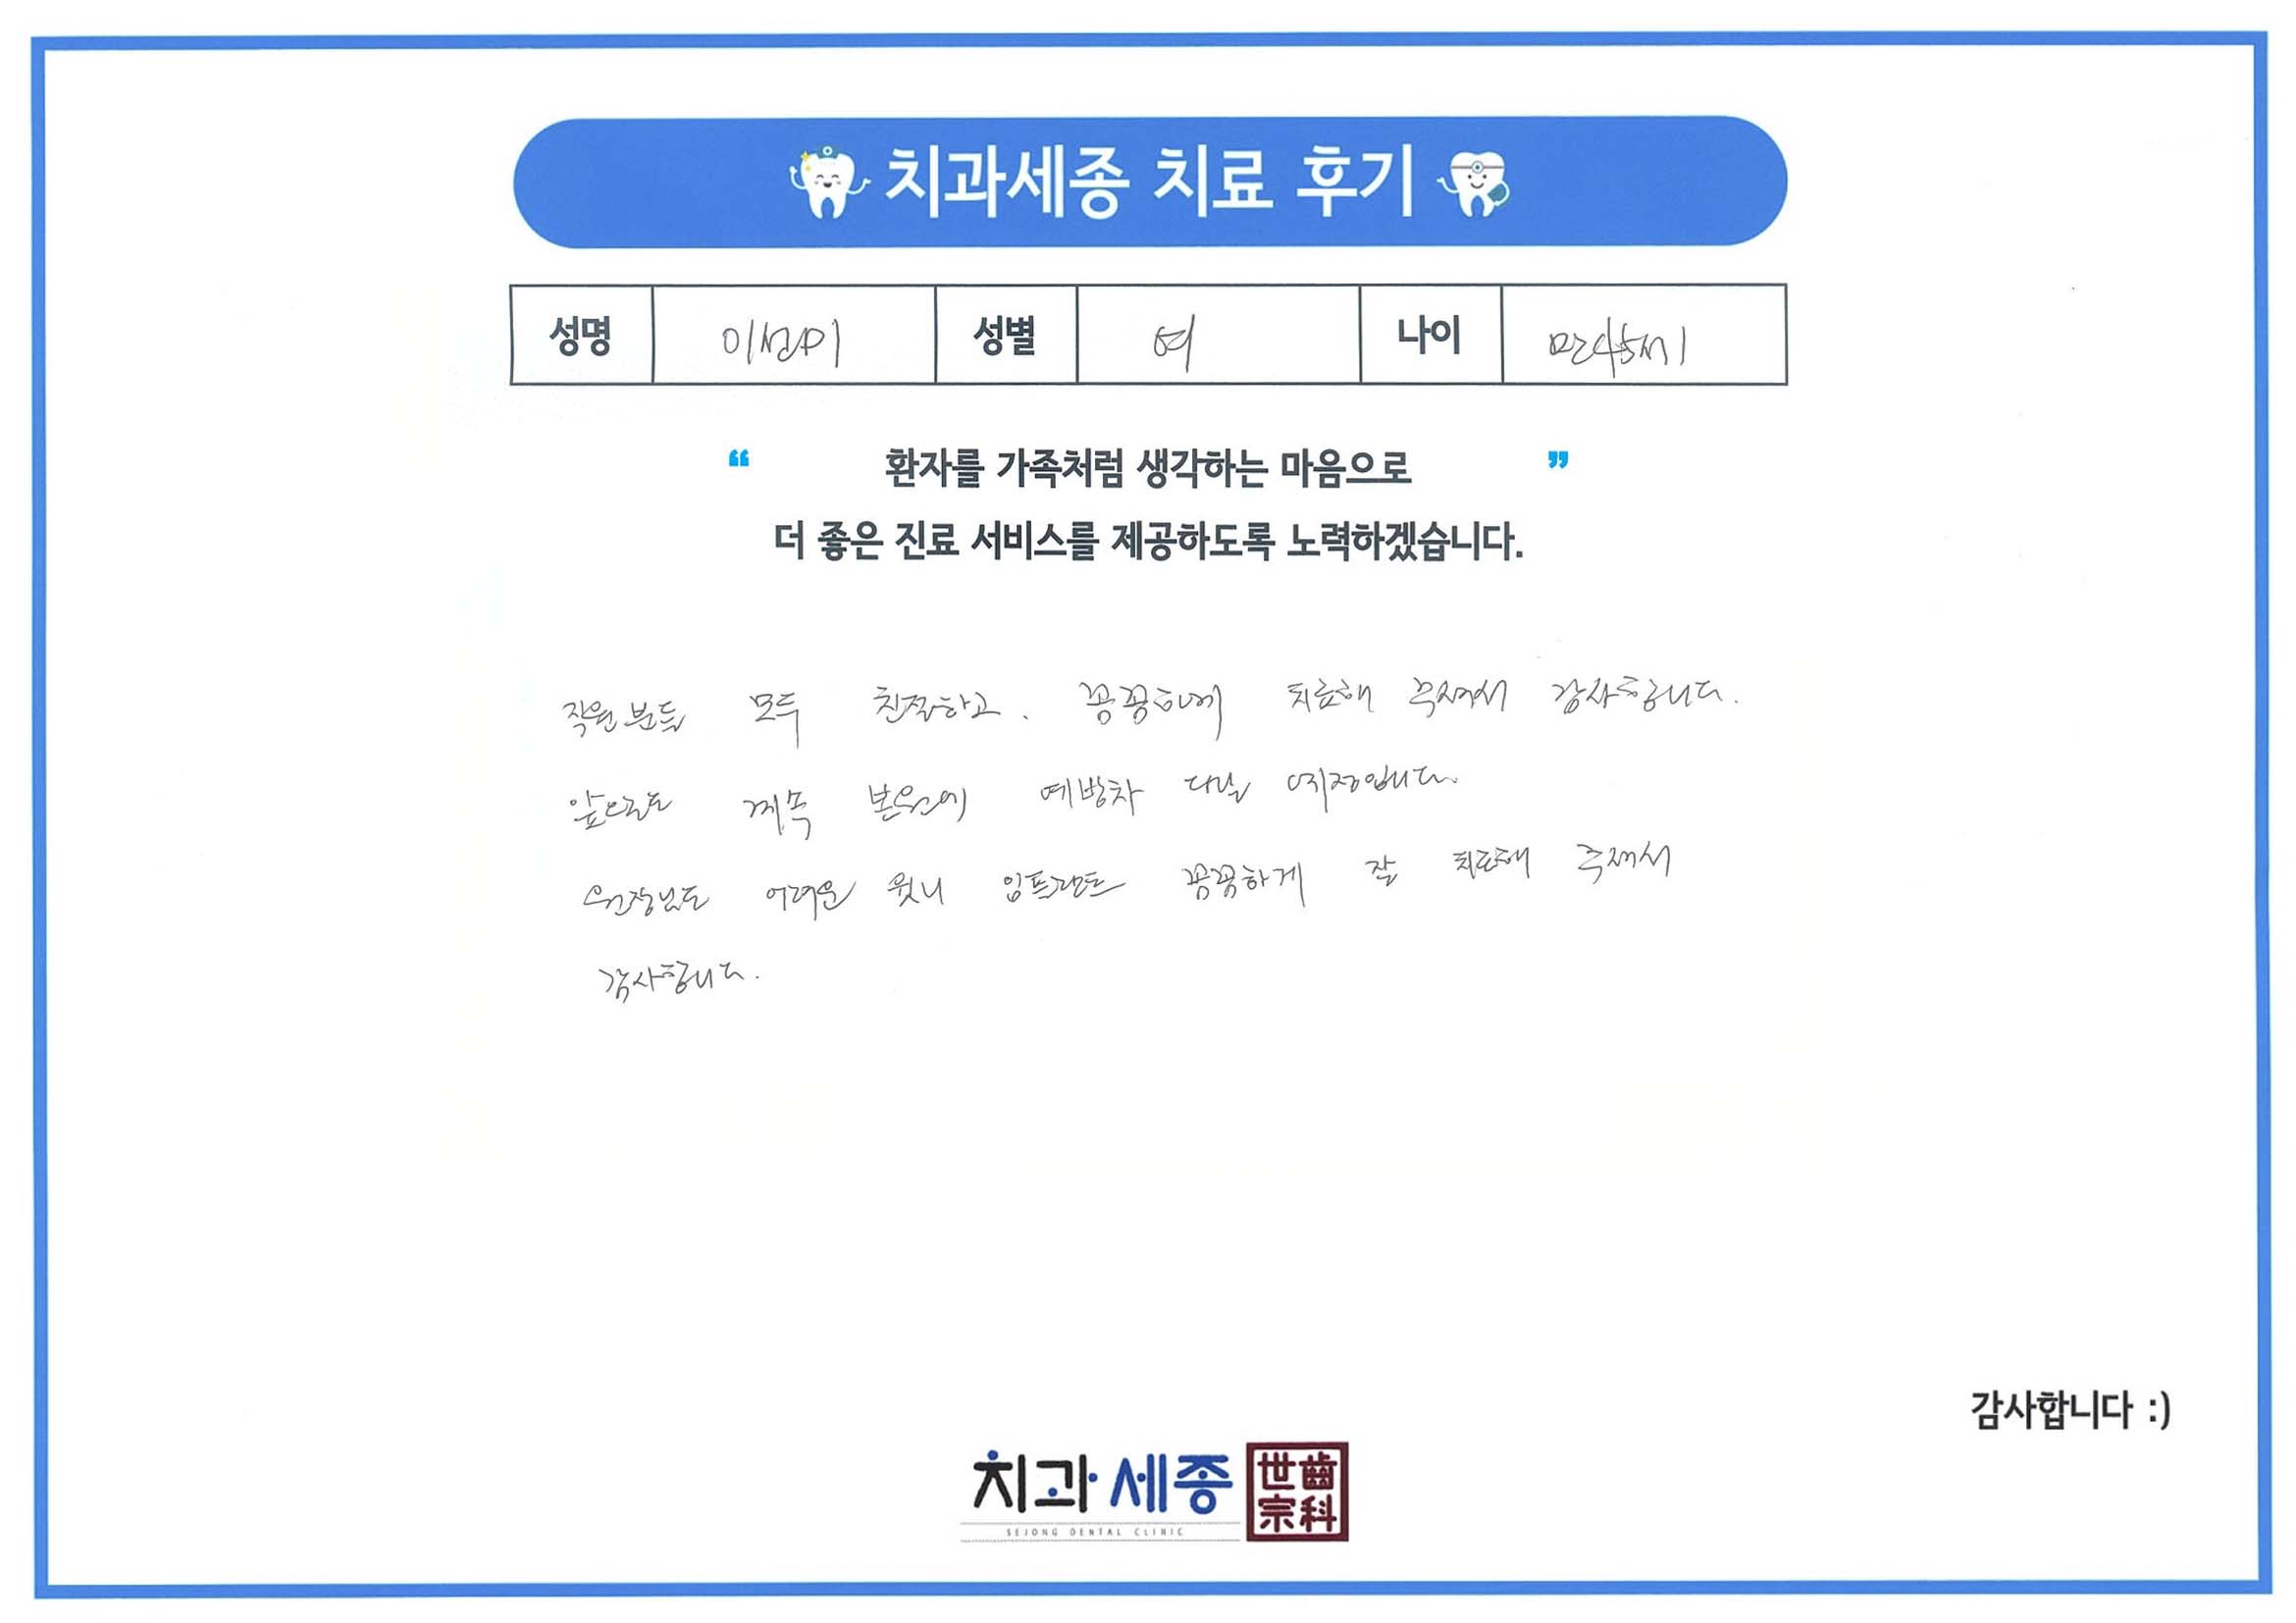 치과세종 치료 후기
성명 이선미 성별 여 나이 만45세
“ 환자를 가족처럼 생각하는 마음으로 ”
더 좋은 진료 서비스를 제공하도록 노력하겠습니다.
직원분들 모두 친절하고. 꼼꼼하게 치료해 주셔서 감사합니다.
앞으로도 계속 본원에 예방차 다닐 예정입니다.
원장님도 어려운 윗니 임플란트 꼼꼼하게 잘 치료해 주셔서
감사합니다.
감사합니다 :)
치과세종 世齒宗科
SEJONG DENTAL CLINIC